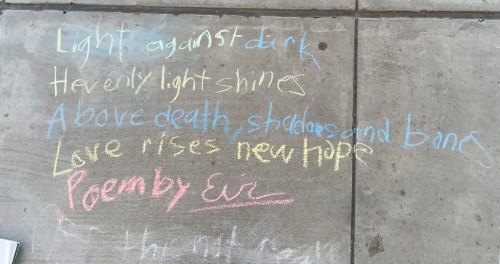 Light against dark
Hevenly light shines
Above death, shadows and bones
Love rises new hope
Poem by Eir
the not